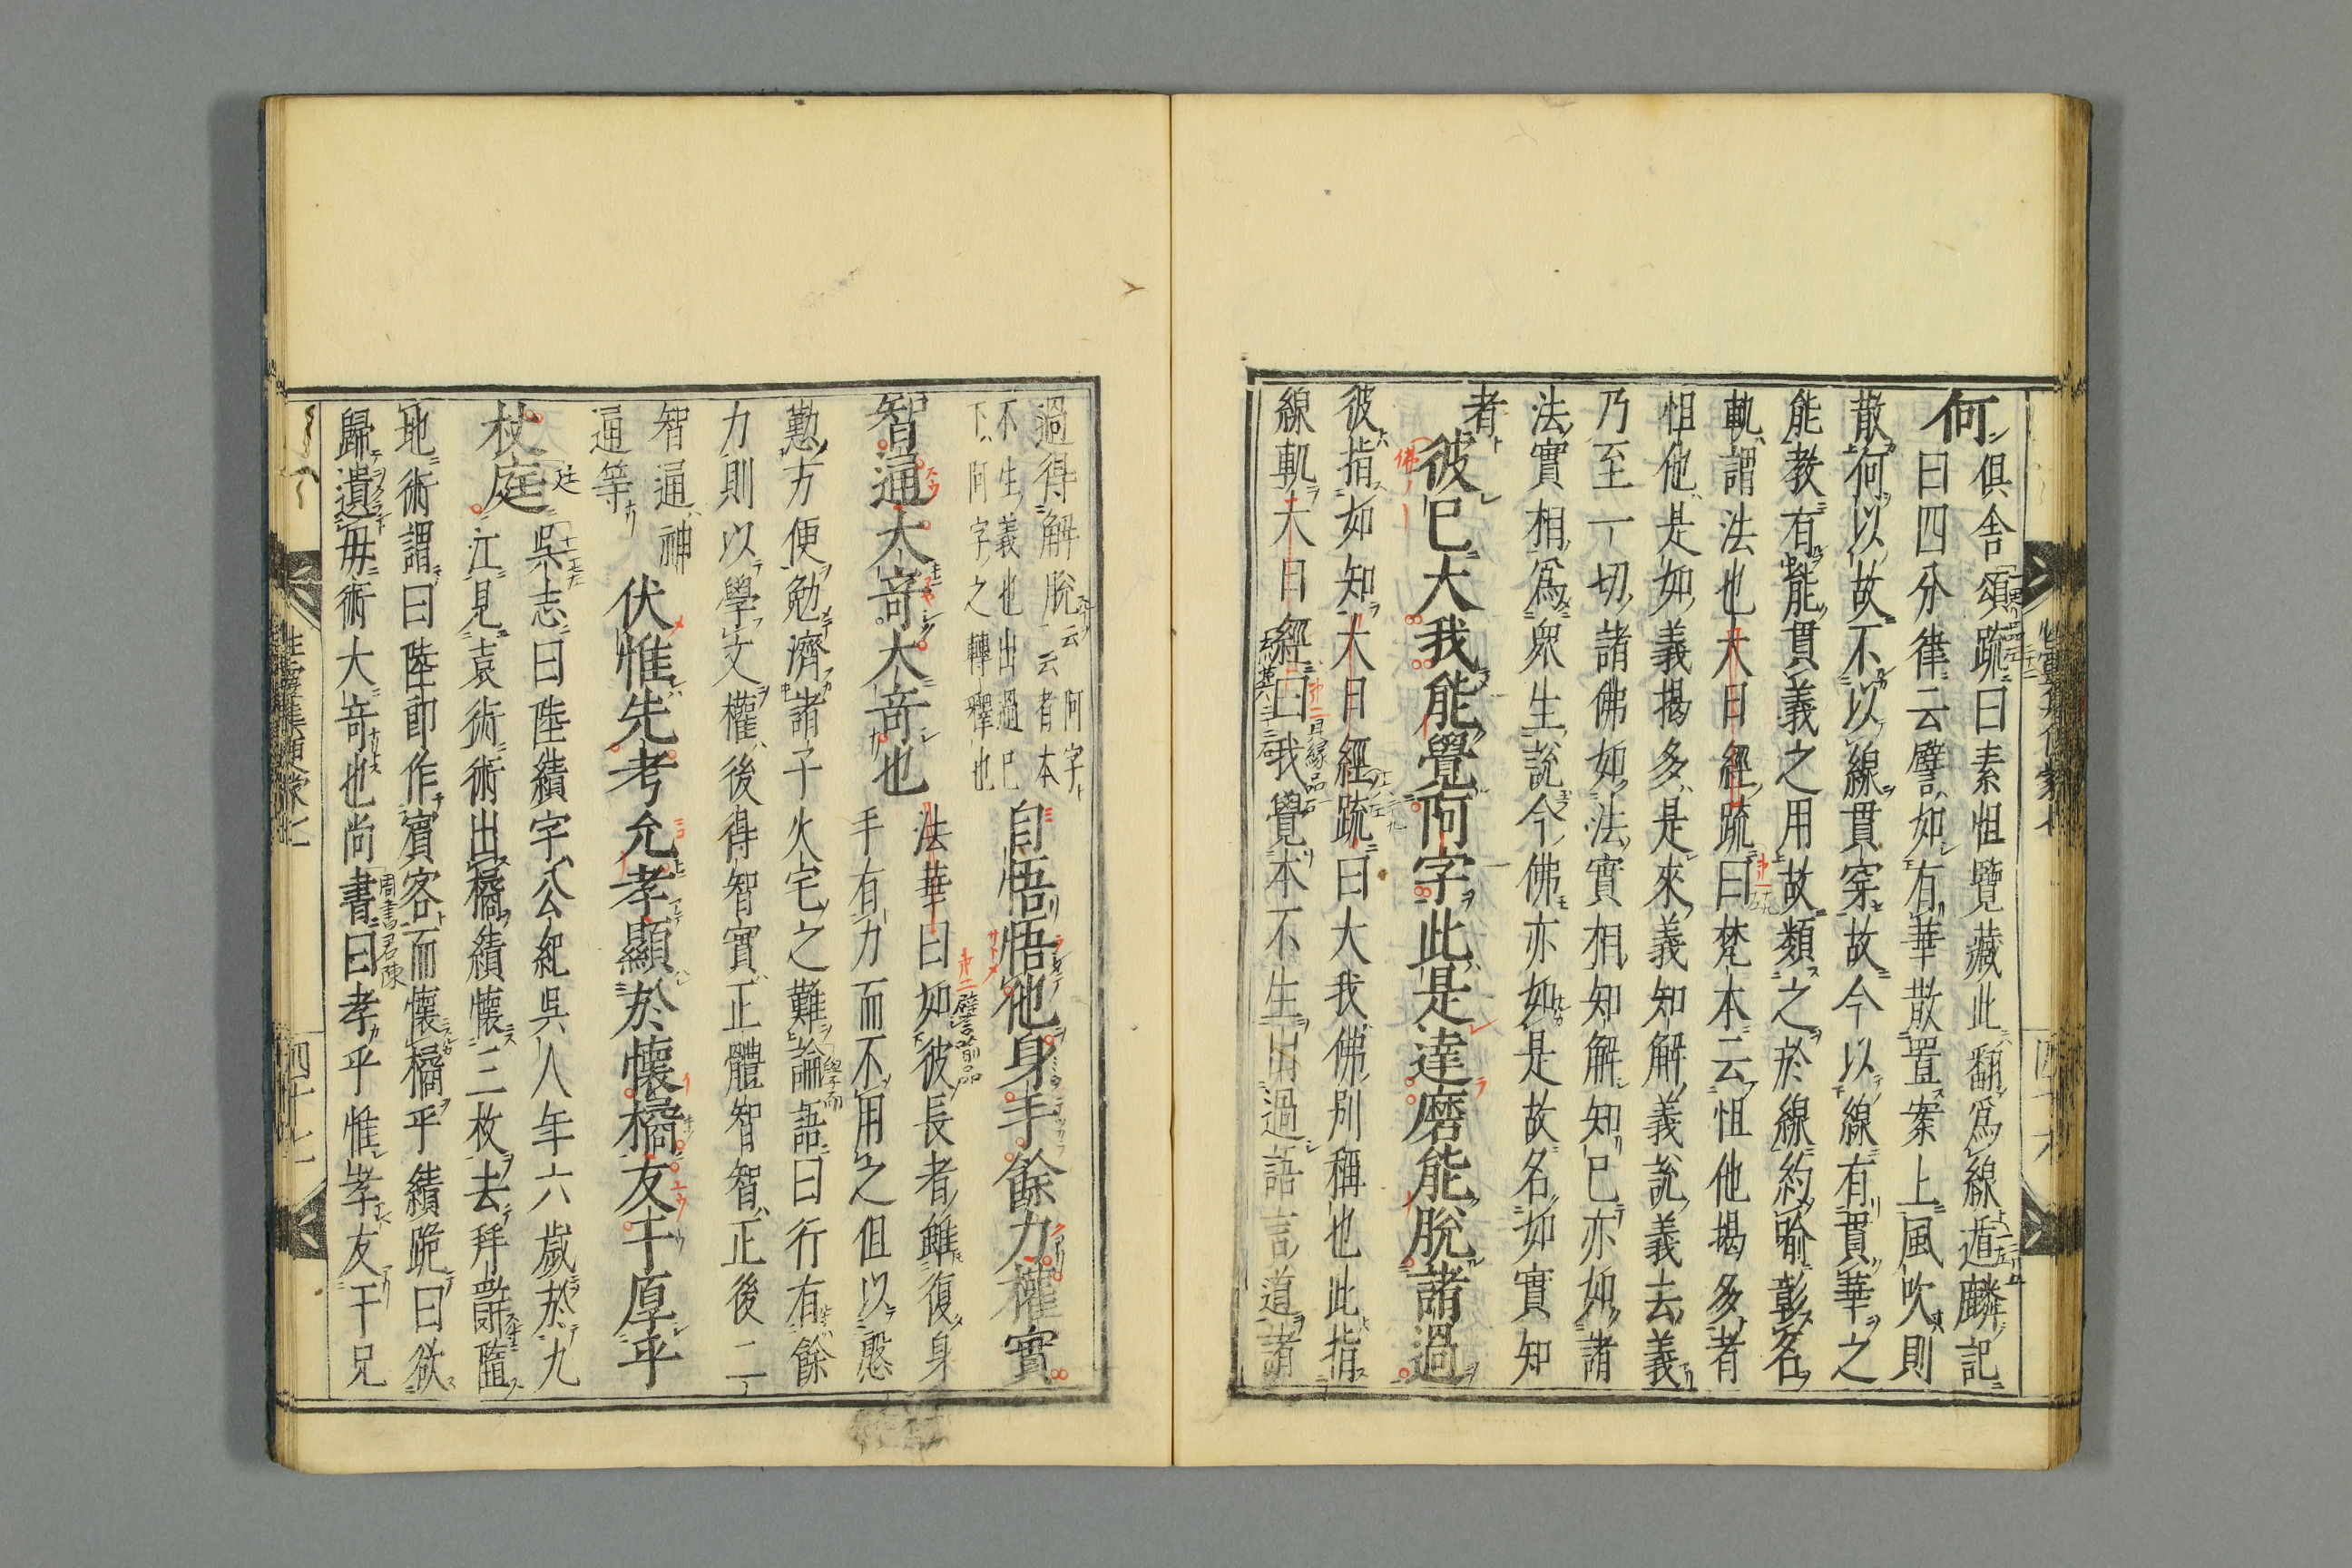 何
俱舍頌疏曰素怛覽藏此翻爲線遁麟記
曰四分律云譬如有華散置案上風吹則
散何以故不以線貫穿故今以線有貫華之
能教有能貫義之用故類之於線約喻彰名
軌謂法也大日經疏曰梵本云怛他揭多者
怛他是如義揭多是來義知解義說義去義
乃至一切諸佛如法實相知解知已亦如諸
法實相爲衆生說今佛亦如是故名如實知
者
彼已大我能覺阿字此是達磨能脫諸過
彼指如知大日經疏曰大我佛別稱也此指
線軌大日經曰我覺本不生出過語言道諸
過得解脫云云者本
不生義也出過已
下阿字之轉釋也
自悟悟他身手餘力權實
智通大奇大奇也
法華曰如彼長者雖復身
手有力而不用之但以慇
懃方便勉濟諸子火宅之難論語曰行有餘
力則以學文權後得智實正體智智正後二
智通神
通等
伏惟先考允孝顯於懷橘友于厚乎
杖庭
吳志曰陸績字公紀吳人年六歲於九
江見袁術術出橘績懷三枚去拜辭墮
地術謂曰陸郎作賓客而懷橘乎績跪曰欲
歸遺母術大奇也尚書曰孝乎惟孝友于兄
性靈集便蒙七
四十七